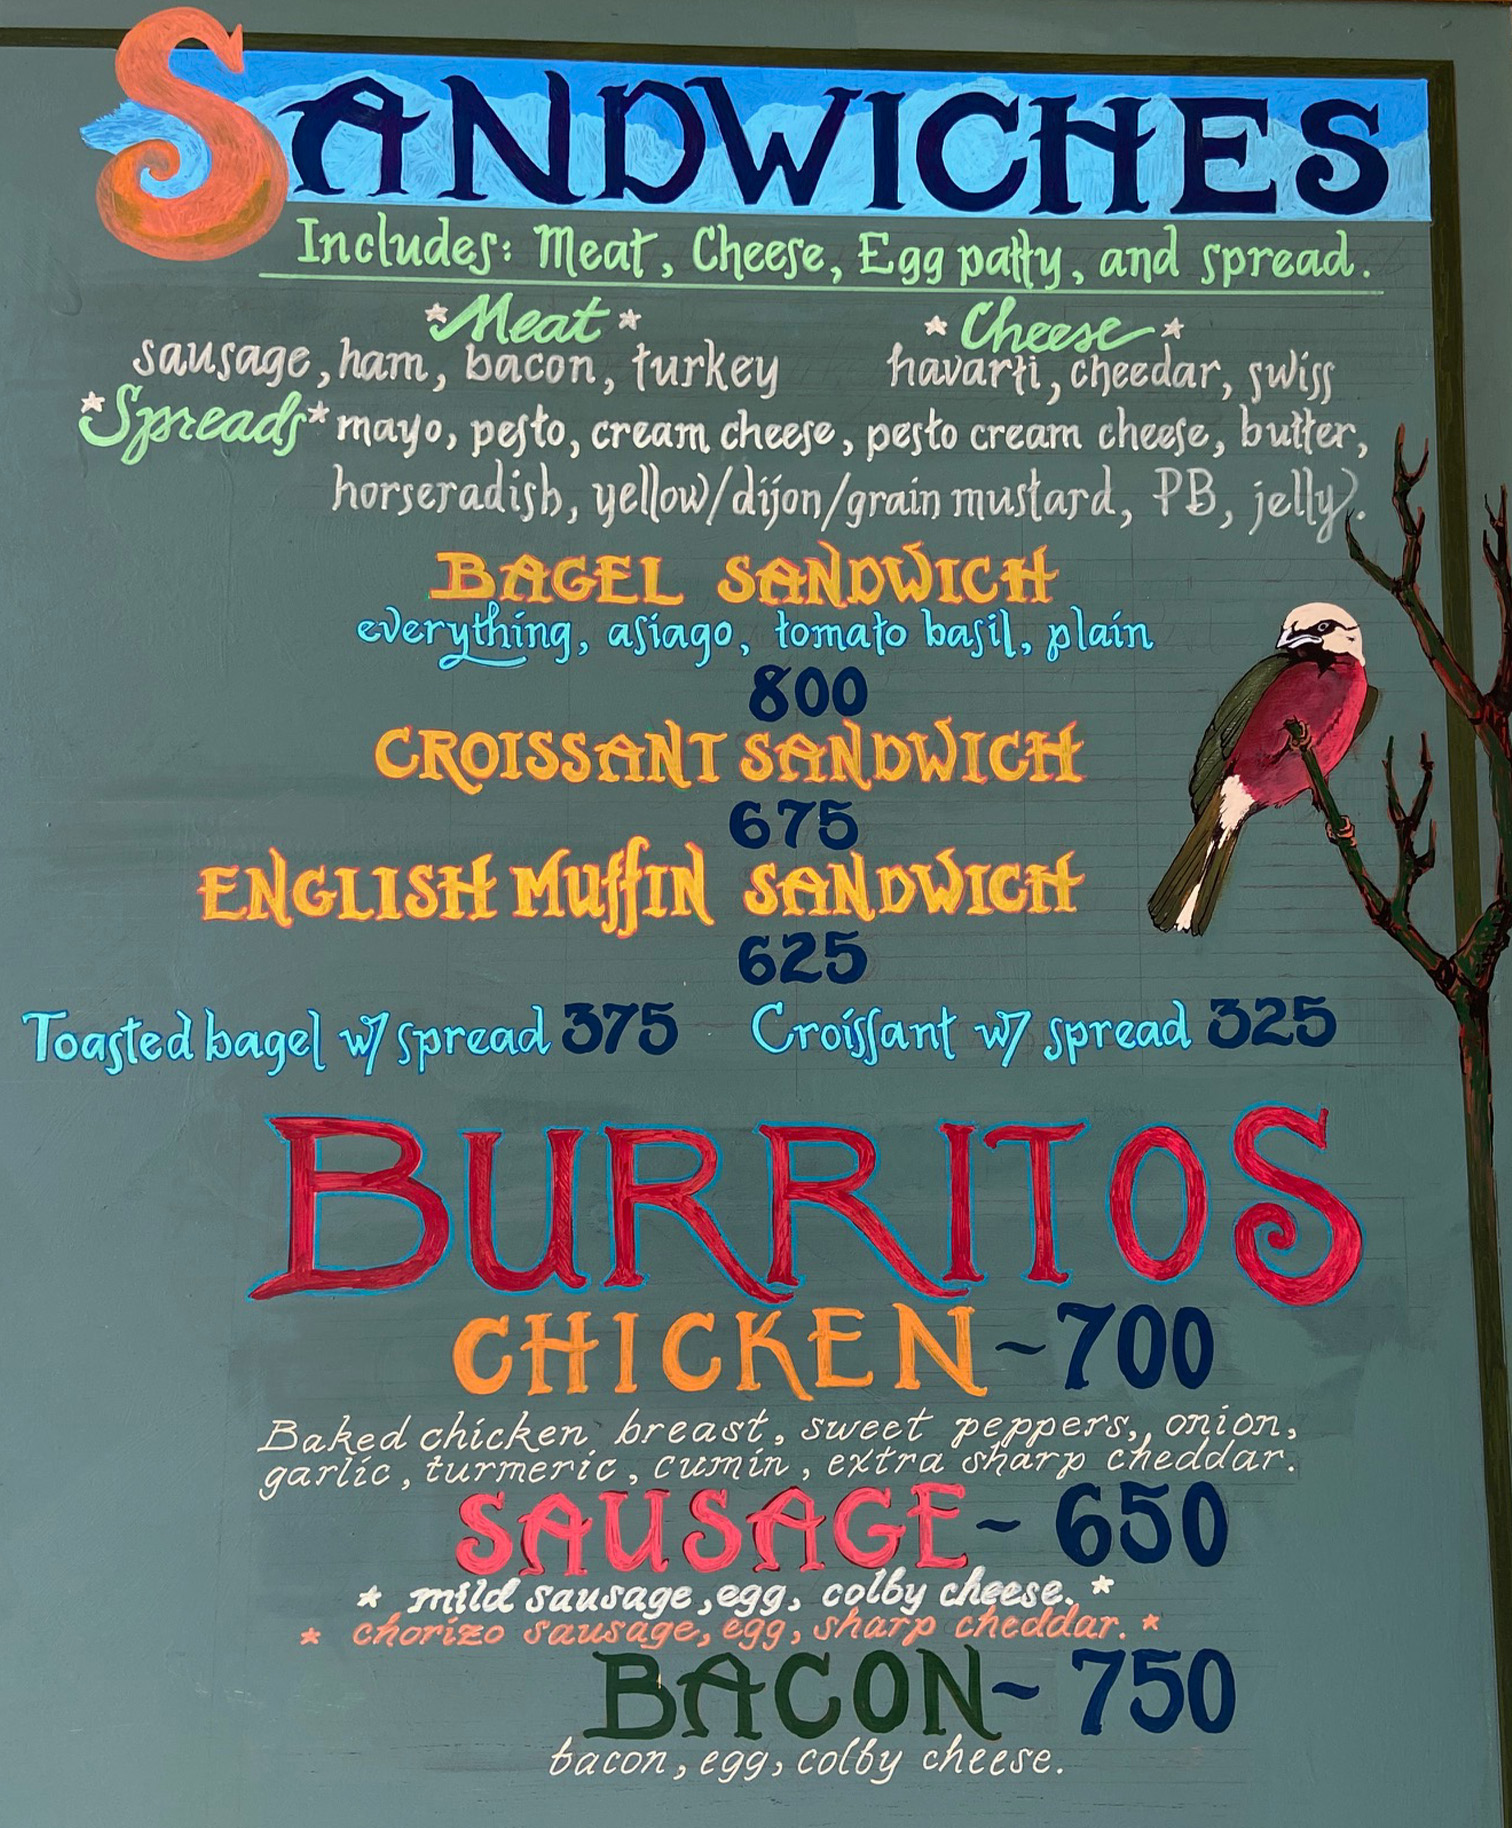 SANDWICHES
Includes: Meat, Cheese, Egg patty, and spread.
*Meat* *Cheese*
sausage, ham, bacon, turkey havarti, cheedar, swiss
*Spreads* mayo, pesto, cream cheese, pesto cream cheese, butter,
horseradish, yellow/dijon/grain mustard, PB, jelly.
BAGEL SANDWICH
everything, asiago, tomato basil, plain
800
CROISSANT SANDWICH
675
ENGLISH MuffIN SANDWICH
625
Toasted bagel w/ spread 375 Croissant w/ spread 325
BURRITOS
CHICKEN ~ 700
Baked chicken breast, sweet peppers, onion,
garlic, turmeric, cumin, extra sharp cheddar.
SAUSAGE ~ 650
* mild sausage, egg, colby cheese. *
* chorizo sausage, egg, sharp cheddar. *
BACON ~ 750
bacon, egg, colby cheese.